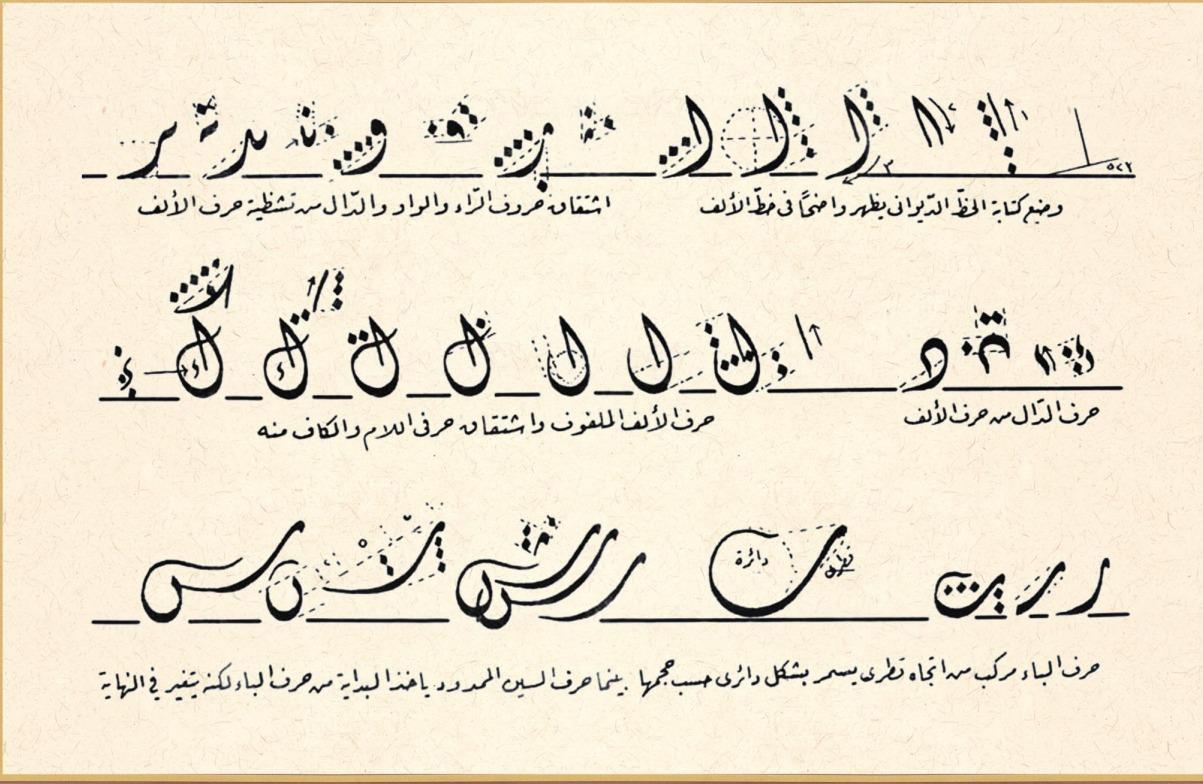 وضع كتابة الخطّ الدّيواني يظهر واضحًا في خطّ الألف
اشتقاق حروف الرّاء والواو والدّال من تشظية حرف الألف
حرف الدّال من حرف الألف
حرف الألف الملفوف واشتقاق حرفي اللام والكاف منه
دائرة
حرف الباء مركب من اتجاه قطري يسمر بشكل دائري حسب حجمها بينما حرف السين الممدود ياخذ البداية من حرف الباء لكنه يتغير في النهاية